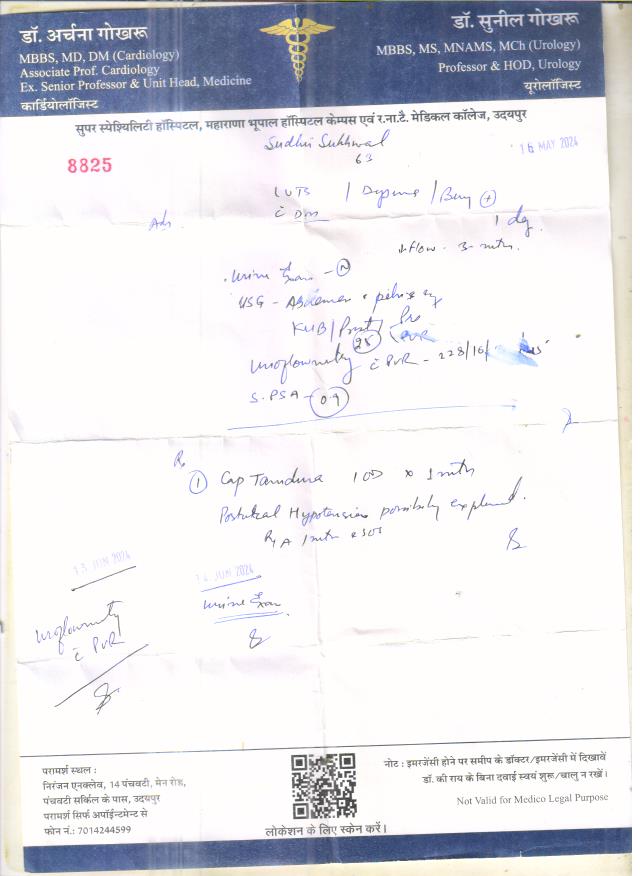 डॉ. अर्चना गोखरू
MBBS, MD, DM (Cardiology)
Associate Prof. Cardiology
Ex. Senior Professor & Unit Head, Medicine
कार्डियोलॉजिस्ट
डॉ. सुनील गोखरू
MBBS, MS, MNAMS, MCh (Urology)
Professor & HOD, Urology
यूरोलॉजिस्ट
सुपर स्पेश्यिलिटी हॉस्पिटल, महाराणा भूपाल हॉस्पिटल केम्पस एवं र.ना.टै. मेडिकल कॉलेज, उदयपुर
Sudhir Sukhwal
63
16 MAY 2024
8825
LUTS /
c̄ Dm
Adv
flow - 3 mth.
Urine Exam - N
USG - Abdomen + pelvis
KUB / Prost / Pre
PVR
25
Uroflowmetry c̄ PVR - 228/16/
S. PSA - 0.9
Rx
1 Cap Tamdura 1OD x 1 mth
Postural Hypotension possibility explained.
1 mth
13 JUN 2024
14 JUN 2024
Uroflowmetry
c̄ PVR
Urine Exam
परामर्श स्थल :
निरंजन एनक्लेव, 14 पंचवटी, मेन रोड,
पंचवटी सर्किल के पास, उदयपुर
परामर्श सिर्फ अपॉइन्टमेन्ट से
फोन नं.: 7014244599
लोकेशन के लिए स्केन करें।
नोट : इमरजेंसी होने पर समीप के डॉक्टर/इमरजेंसी में दिखावें
डॉ. की राय के बिना दवाई स्वयं शुरू/चालु न रखें।
Not Valid for Medico Legal Purpose